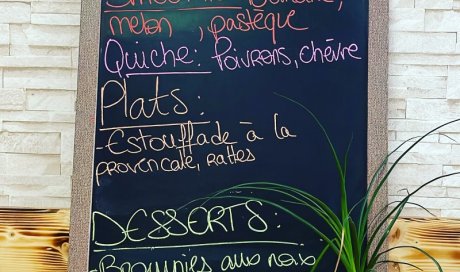 melon , pastèque
Quiche: Poivrons, chèvre
Plats:
-Estouffade à la
provencale, rattes
DESSERTS:
-Brownies aux noix